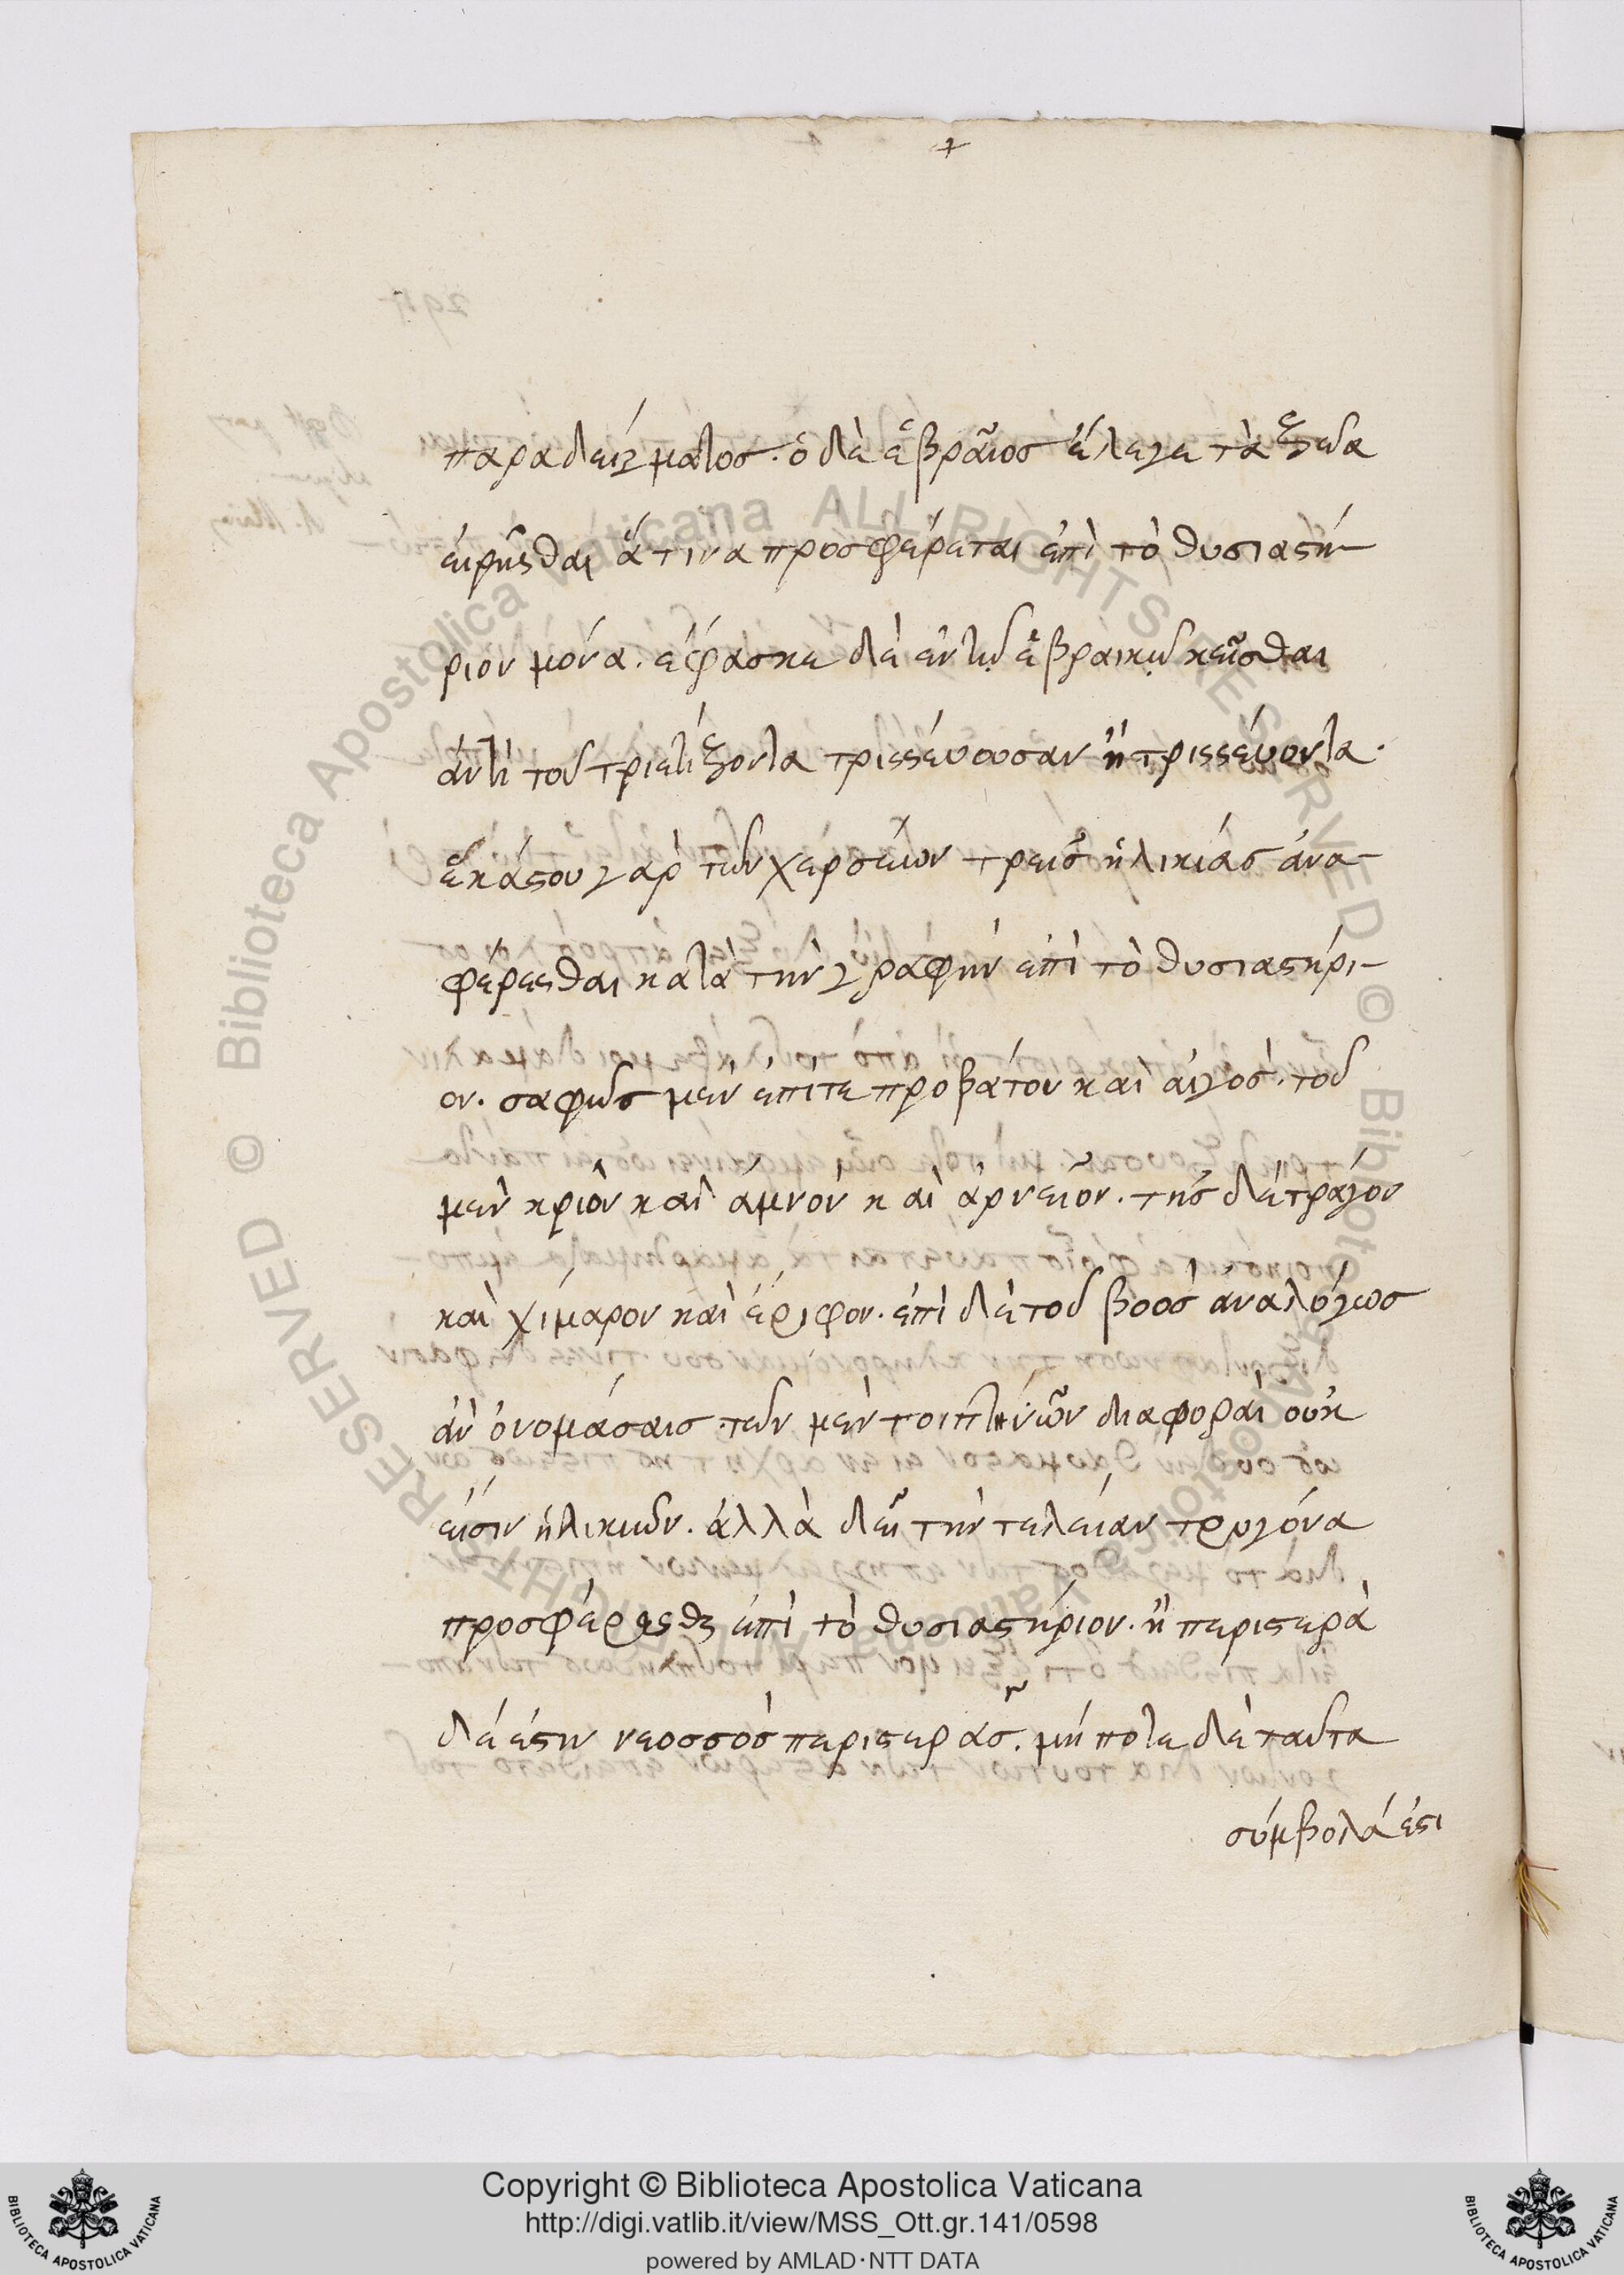 +
παραδείγματος. ὁ δὲ ἑβραῖος ἔλεγε τὰ ζῶα
εἰρῆσθαι ἅτινα προσφέρεται ἐπὶ τὸ θυσιαστή-
ριον μόνα. ἔφασκε δὲ ἐν τῷ ἑβραικῷ κεῖσθαι
ἀντὶ τοῦ τριετίζοντα τρισσεύουσαν ἢ τρισσεύοντα.
ἑκάστου γὰρ τῶν χερσείων τρεῖς ἡλικίας ἀνα-
φέρεσθαι κατὰ τὴν γραφὴν ἐπὶ τὸ θυσιαστήρι-
ον. σαφῶς μὲν ἐπί τε προβάτου καὶ αἰγός. τοῦ
μὲν κριὸν καὶ ἀμνὸν καὶ ἀρνεῖον. τῆς δὲ τράγον
καὶ χίμαρον καὶ ἔριφον. ἐπὶ δὲ τοῦ βοὸς ἀναλόγως
ἂν ὀνομάσαις. τῶν μέν τοι πτηνῶν διαφοραὶ οὐκ
εἰσὶν ἡλικιῶν. ἀλλὰ δεῖ τὴν τελείαν τρυγόνα
προσφέρεσθαι ἐπὶ τὸ θυσιαστήριον. ἢ περιστερὰ
δέ ἐστιν νεοσσὸς περιστερᾶς. μήποτε δὲ ταῦτα
σύμβολά ἐστι
Copyright © Biblioteca Apostolica Vaticana
http://digi.vatlib.it/view/MSS_Ott.gr.141/0598
powered by AMLAD·NTT DATA
BIBLIOTECA APOSTOLICA VATICANA
BIBLIOTECA APOSTOLICA VATICANA